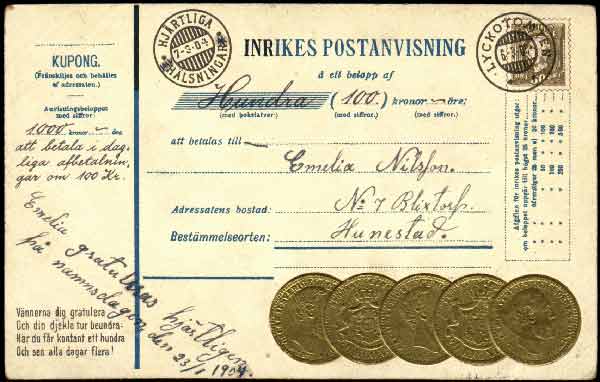 KUPONG.
(Frånskiljes och behålles
af adressaten.)
Anvisningsbeloppet
med siffror:
1000 kronor öre
att betala i dag-
liga afbetalnin-
gar om 100 Kr.
Emelia gratuleras hjärtligen
på namnsdagen den 23/1 1904
Vännerna dig gratulera
Och din djekla tur beundra:
Här du får kontant ett hundra
Och sen alla dagar flera!
HJÄRTLIGA
7-3-04
HÄLSNINGAR
INRIKES POSTANVISNING
å ett belopp af
Hundra (100.) kronor öre:
(med bokstäfver) (med siffror.) (med siffror.)
att betalas till
Emelia Nilsson.
Adressatens bostad: No 7 Blixtorp.
Bestämmelseorten: Hunestad.
LYCKOTOMTEN
50
Afgiften för inrikes postanvisning utgör:
om beloppet uppgår till högst 25 kronor